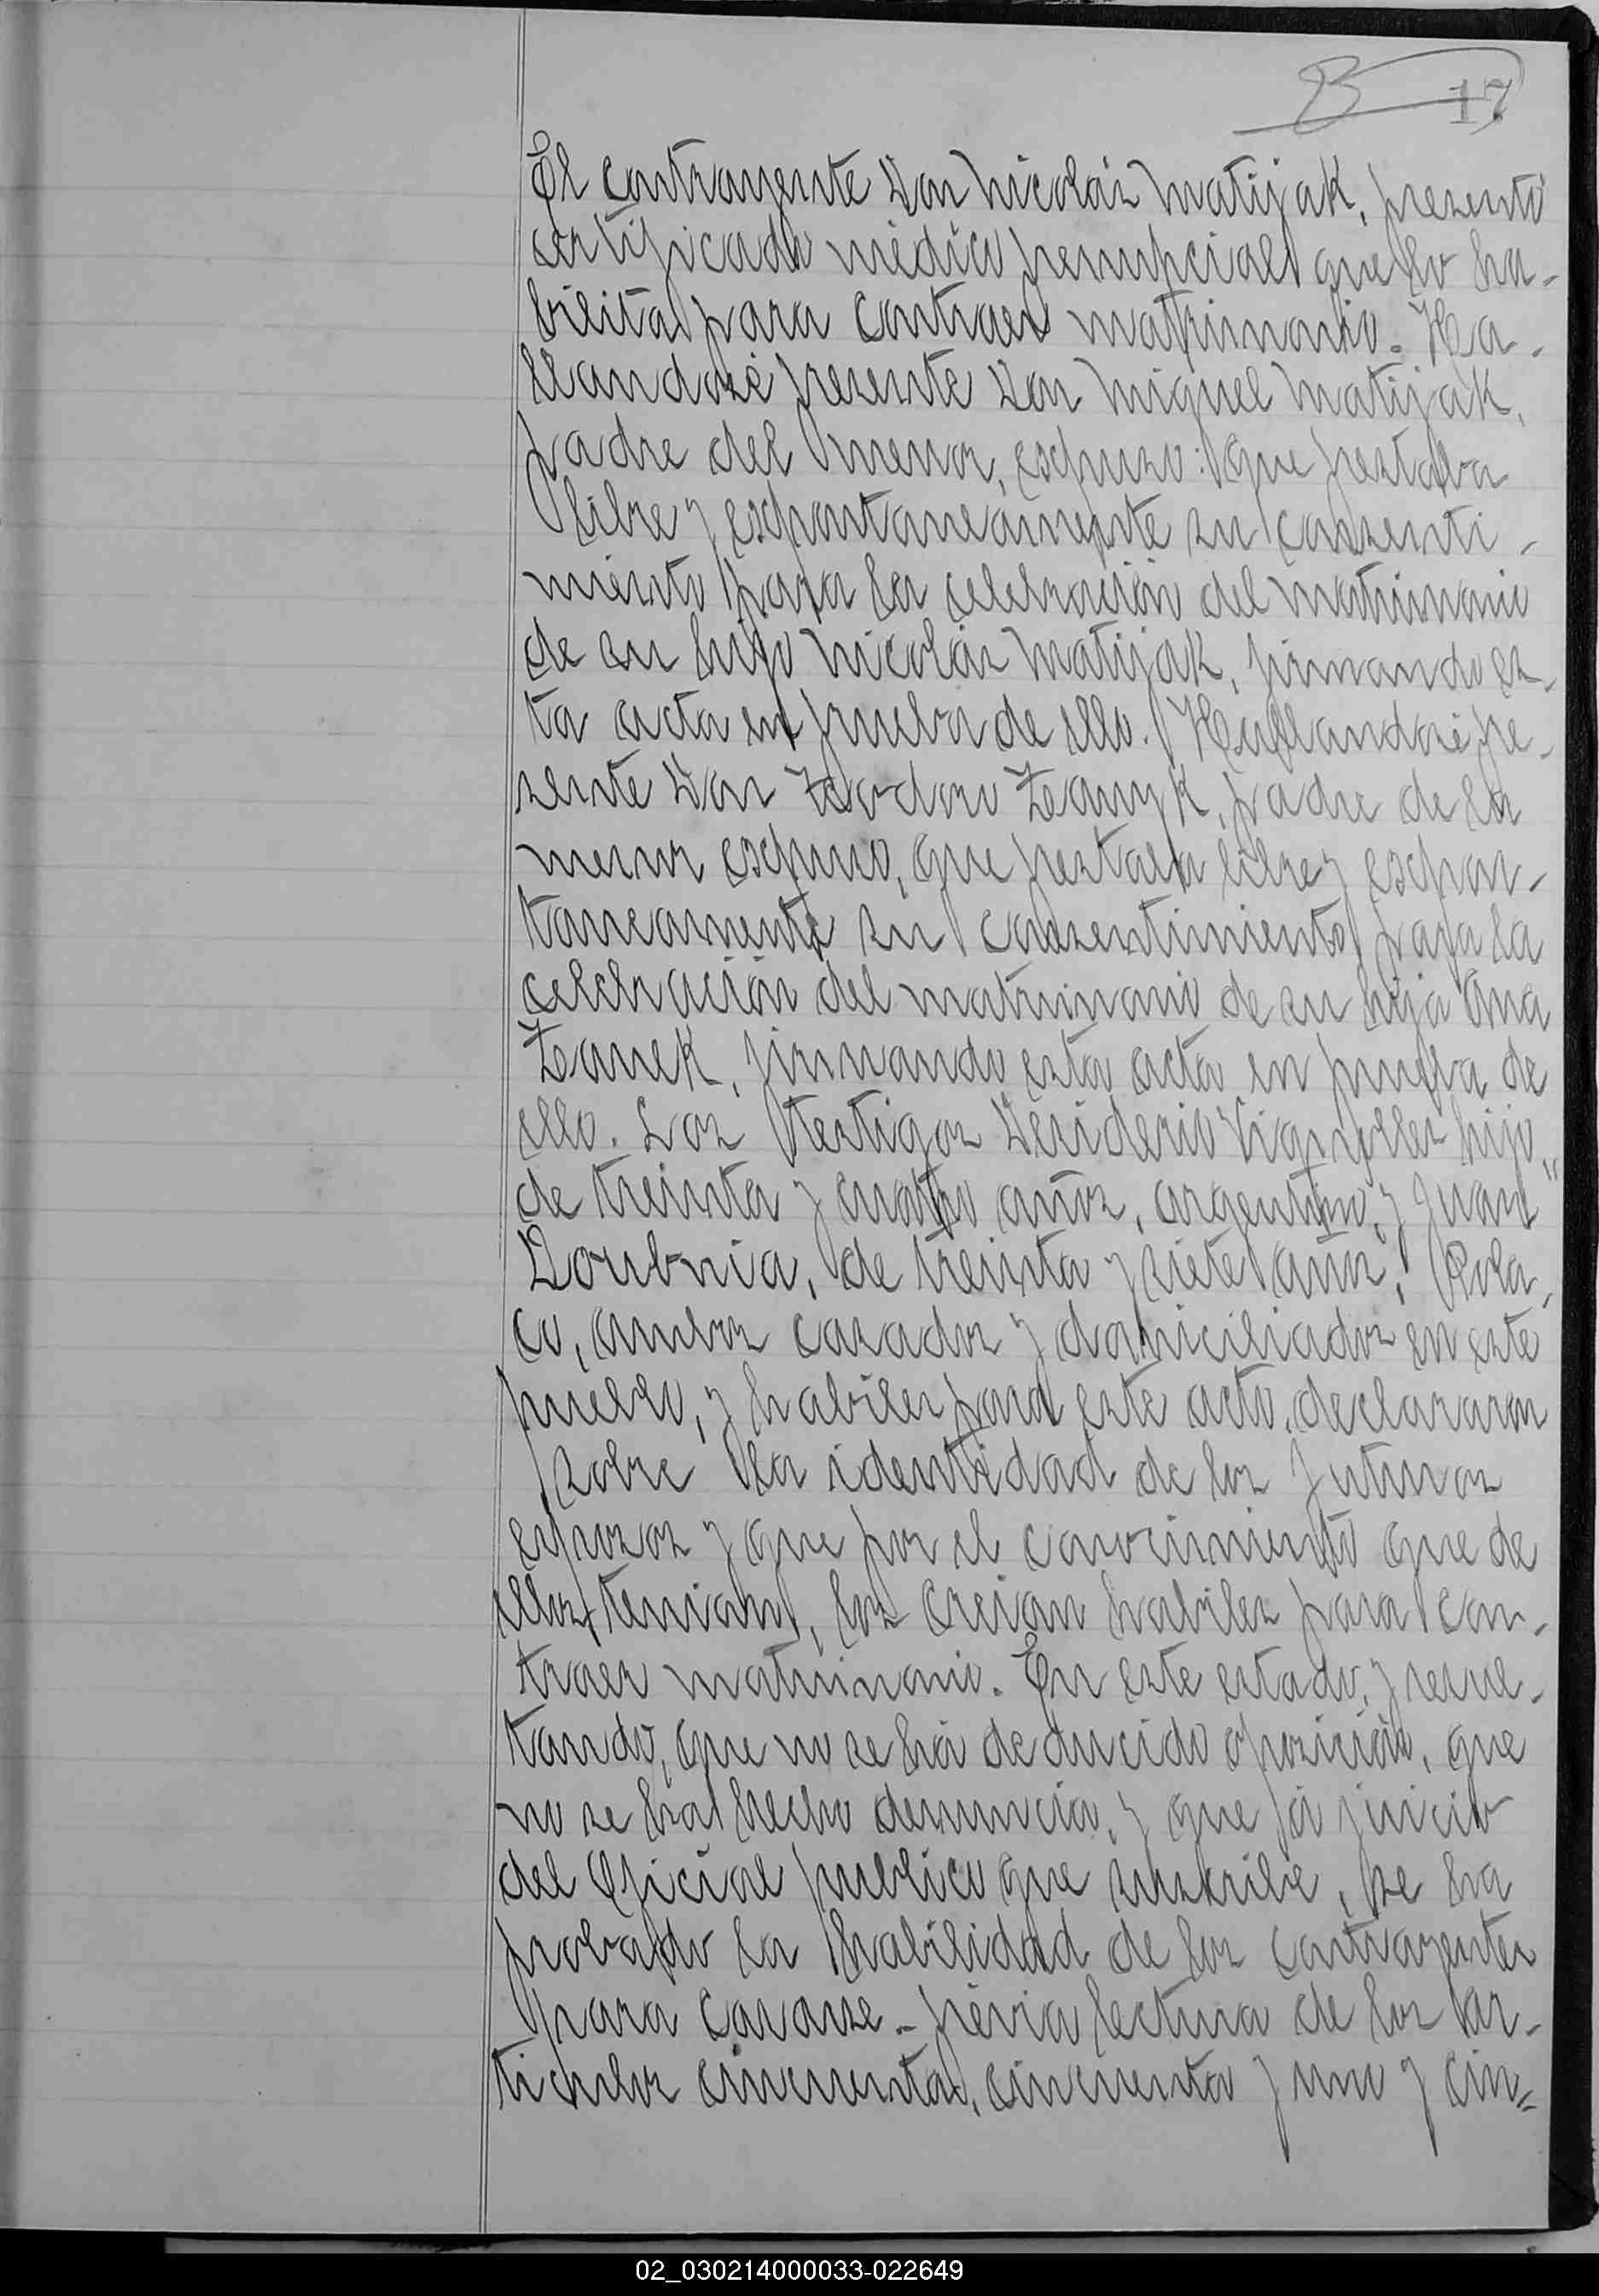 17
El contrayente Don Nicolás Matijak, presentó
certificado médico prenupcial que lo ha-
bilita para contraer matrimonio. Ha-
llandosé presente Don Miguel Matijak,
padre del menor, expuso: que prestaba
libre y espontaneamente su consenti-
miento para la celebración del matrimonio
de su hijo Nicolás Matijak, firmando es-
ta acta en prueba de ello. Hallandosé pre-
sente Don Teodoro padre de la
menor expuso, que prestaba libre y espon-
taneamente su consentimiento para la
celebración del matrimonio de su hija Ana
firmando esta acta en prueba de
ello. Los testigos Desiderio hijo"
de treinta y cuatro años, argentino, y Juan
de treinta y siete años, Pola-
co, ambos casados y domiciliados en este
pueblo, y habiles para este acto, declararon
sobre la identidad de los futuros
esposos y que por el conocimiento que de
ellos tenian, los creian habiles para con-
traer matrimonio. En este estado, y resul-
tando, que no se há deducido oposición, que
no se ha hecho denuncia, y que á juicio
del Oficial publico que suskribe, se ha
probado la habilidad de los contrayentes
para casarse - prévia lectura de los ar-
ticulos cincuenta, cincuenta y uno y cin-
02_030214000033-022649